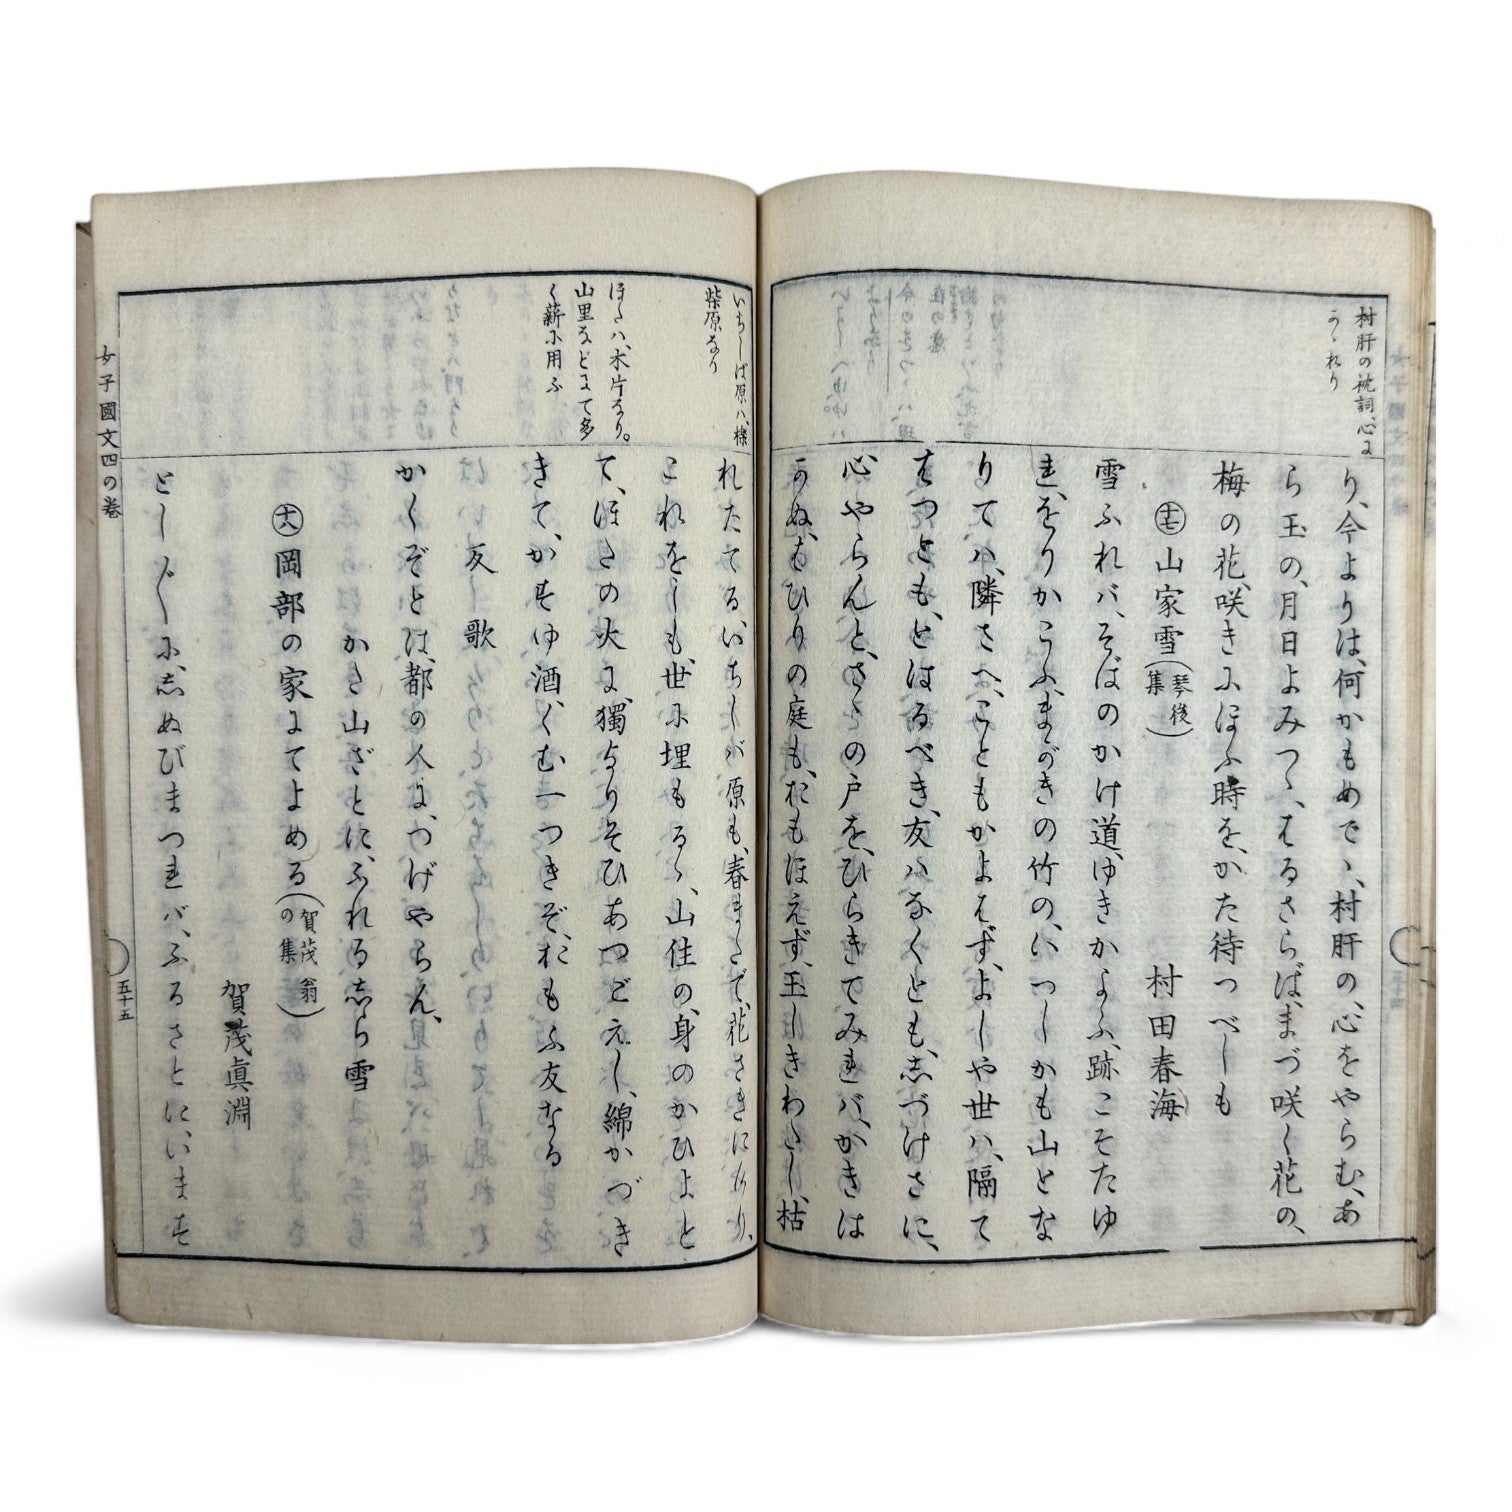 村肝の枕詞、心に
かゝれり
り、今よりは、何かもめで、、村肝の、心をやらむ、あ
ら玉の、月日よみつゝ、はるさらば、まづ咲く花の、
梅の花、咲きにほふ時を、かた待つべしも
十七 山家雪(琴後集) 村田春海
雪ふれバ、そばのかけ道、ゆきかよふ、跡こそたゆ
れ、をりかこふ、まがきの竹の、いつしかも山とな
りてハ、隣さへ、こともかよはず、よしや世ハ、隔て
はつとも、とはるべき、友ハなくとも、志づけさに、
心やらんと、さゝの戸を、ひらきてみれバ、かきほ
かぬ、もひりの庭も、おもほえず、玉しきわたし、枯
いちしば原ハ、檪
柴原なり
ほたハ、木片なり。
山里などにて多
く薪に用ふ
れたてる、いちしバ原も、春まさで、花さきにけり、
これをしも、世に埋もるゝ、山住の、身のかひよと
て、ほたの火に、獨よりそひ、あつどえし、綿かづき
きて、かすゆ酒、くむ一つきぞ、おもふ友なる
反歌
かくぞとは、都の人に、つげやらん、
かた山ざとに、ふれる志ら雪
十八 岡部の家にてよめる(賀茂翁の集)
賀茂眞淵
としごろに、志ぬびまつれバ、ふるさとに、います
女子國文四の卷
五十五